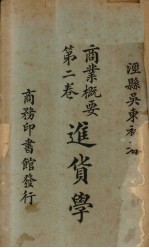 涇縣吳東初
商業概要
第二卷
進貨學
商務印書館發行